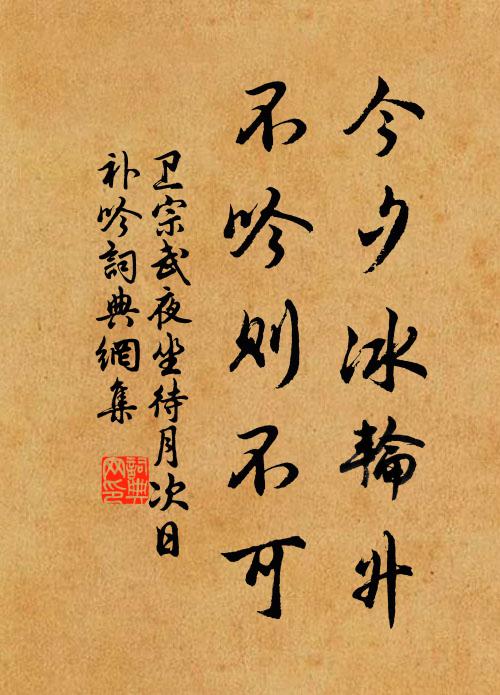 今夕冰輪升
不吟則不可
卫宗武夜坐待月次日
补吟詞典網集
詞典网印